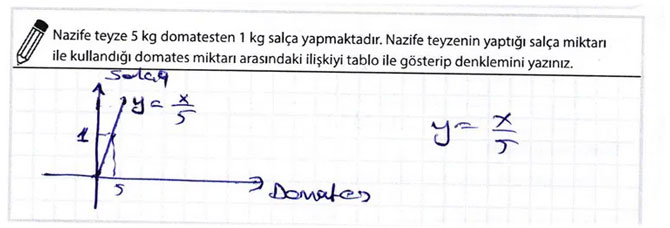 Nazife teyze 5 kg domatesten 1 kg salça yapmaktadır. Nazife teyzenin yaptığı salça miktarı
ile kullandığı domates miktarı arasındaki ilişkiyi tablo ile gösterip denklemini yazınız.
Salça
y = x/5
y = x/5
1
5
Domates